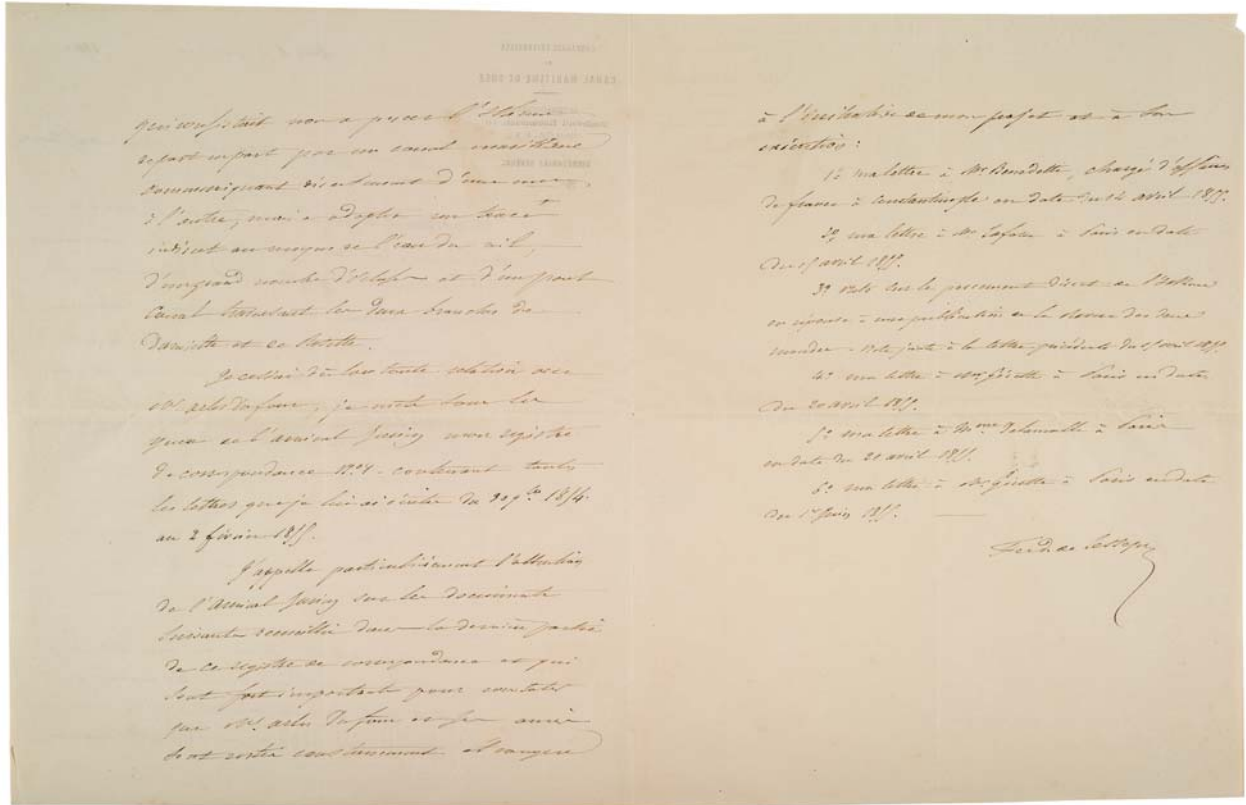 qui consistait non à percer l'Isthme
de part en part par un canal maritime
communiquant directement d'une mer
à l'autre, mais à adopter un tracé
indirect au moyen de l'eau du nil,
d'un grand nombre d'écluses et d'un pont
canal traversant les deux branches de
Damiette et de Rosette.
Je cessai dès lors toute relation avec
Mr. arlès Dufour; je mets sous les
yeux de l'amiral Jurien mon registre
de correspondance No 1. contenant toutes
les lettres que je lui ai écrites du 1854.
au 2 février 1855.
J'appelle particulièrement l'attention
de l'amiral Jurien sur les documents
suivants recueillis dans la dernière partie
de ce registre de correspondance et qui
sont fort importants pour constater
que Mr. arlès Dufour et ses amis
sont restés constamment étrangers
à l'initiative de mon projet et à son
exécution:
1o ma lettre à Mr Benedetti, chargé d'affaires
de france à Constantinople en date du 14 avril 1855.
2o, ma lettre à Mr. à Paris en date
du 15 avril 1855.
3o note sur le percement direct de l'Isthme
en réponse à une publication de la Revue des deux
mondes. note jointe à la lettre précédente du 15 avril 1855.
4o ma lettre à Mr. à Paris en date
du 20 avril 1855.
5o ma lettre à Mme Delamalle à Paris
en date du 21 avril 1855.
6o ma lettre à Mr. à Paris en date
du 1er Juin 1855.
Ferd. de Lesseps
COMPAGNIE UNIVERSELLE
CANAL MARITIME DE SUEZ